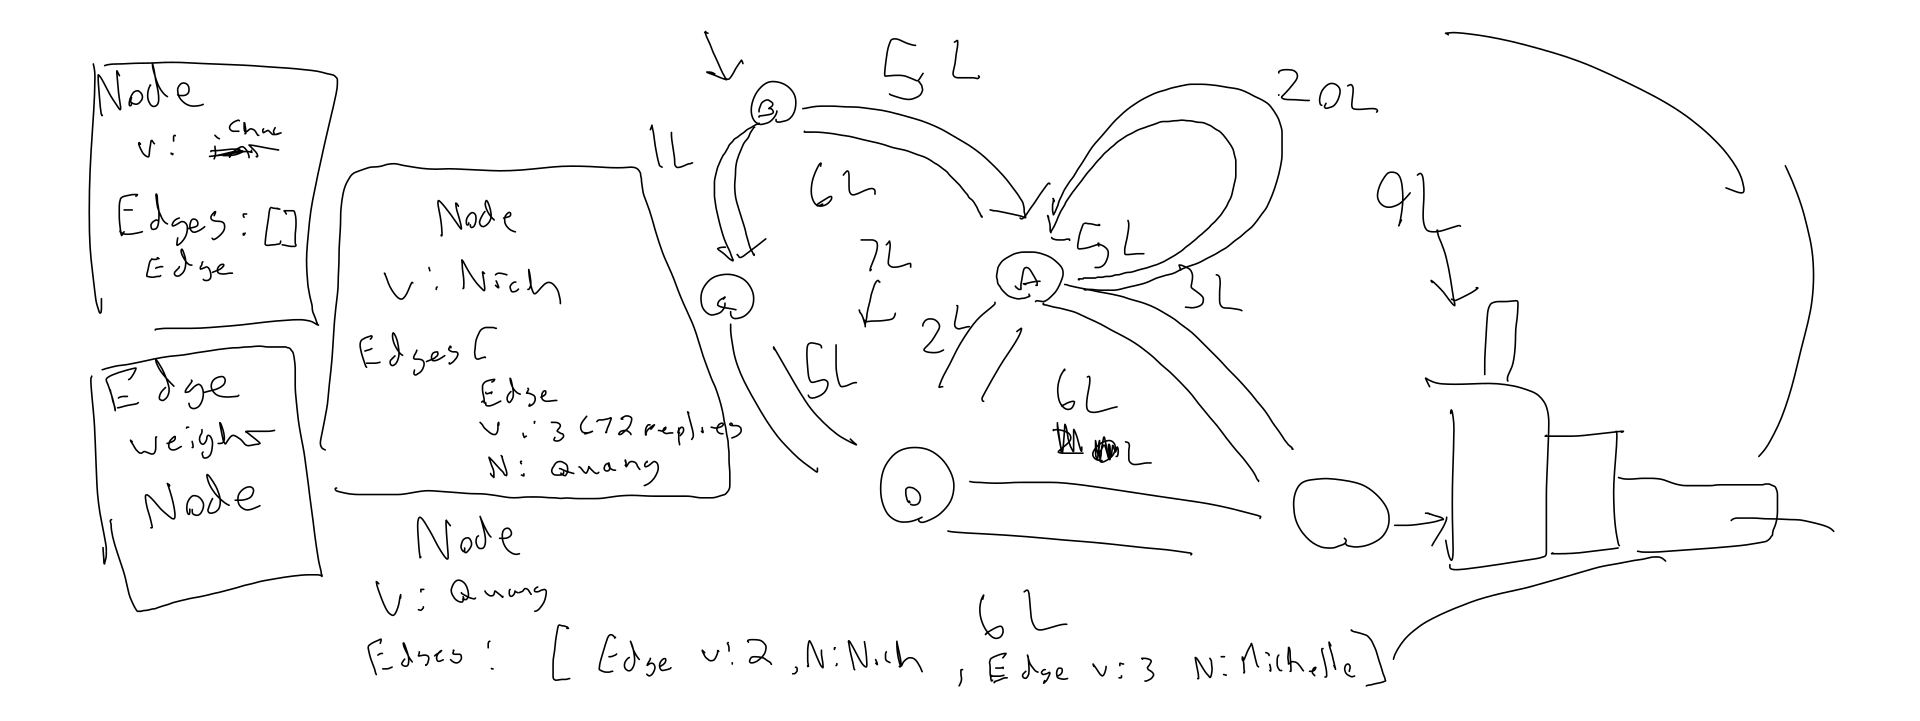 Node
v: char
Edges: []
Edge
Edge
weight
Node
Node
v: Nich
Edges [
Edge
v: 3 (72 replies
N: Quang
Node
V: Quang
Edges: [ Edge v:2, N:Nich, Edge v:3 N:Michelle]
B
5L
1L
6L
20L
7L
-5L
A
3L
2L
C
5L
6L
L
D
6L
9L